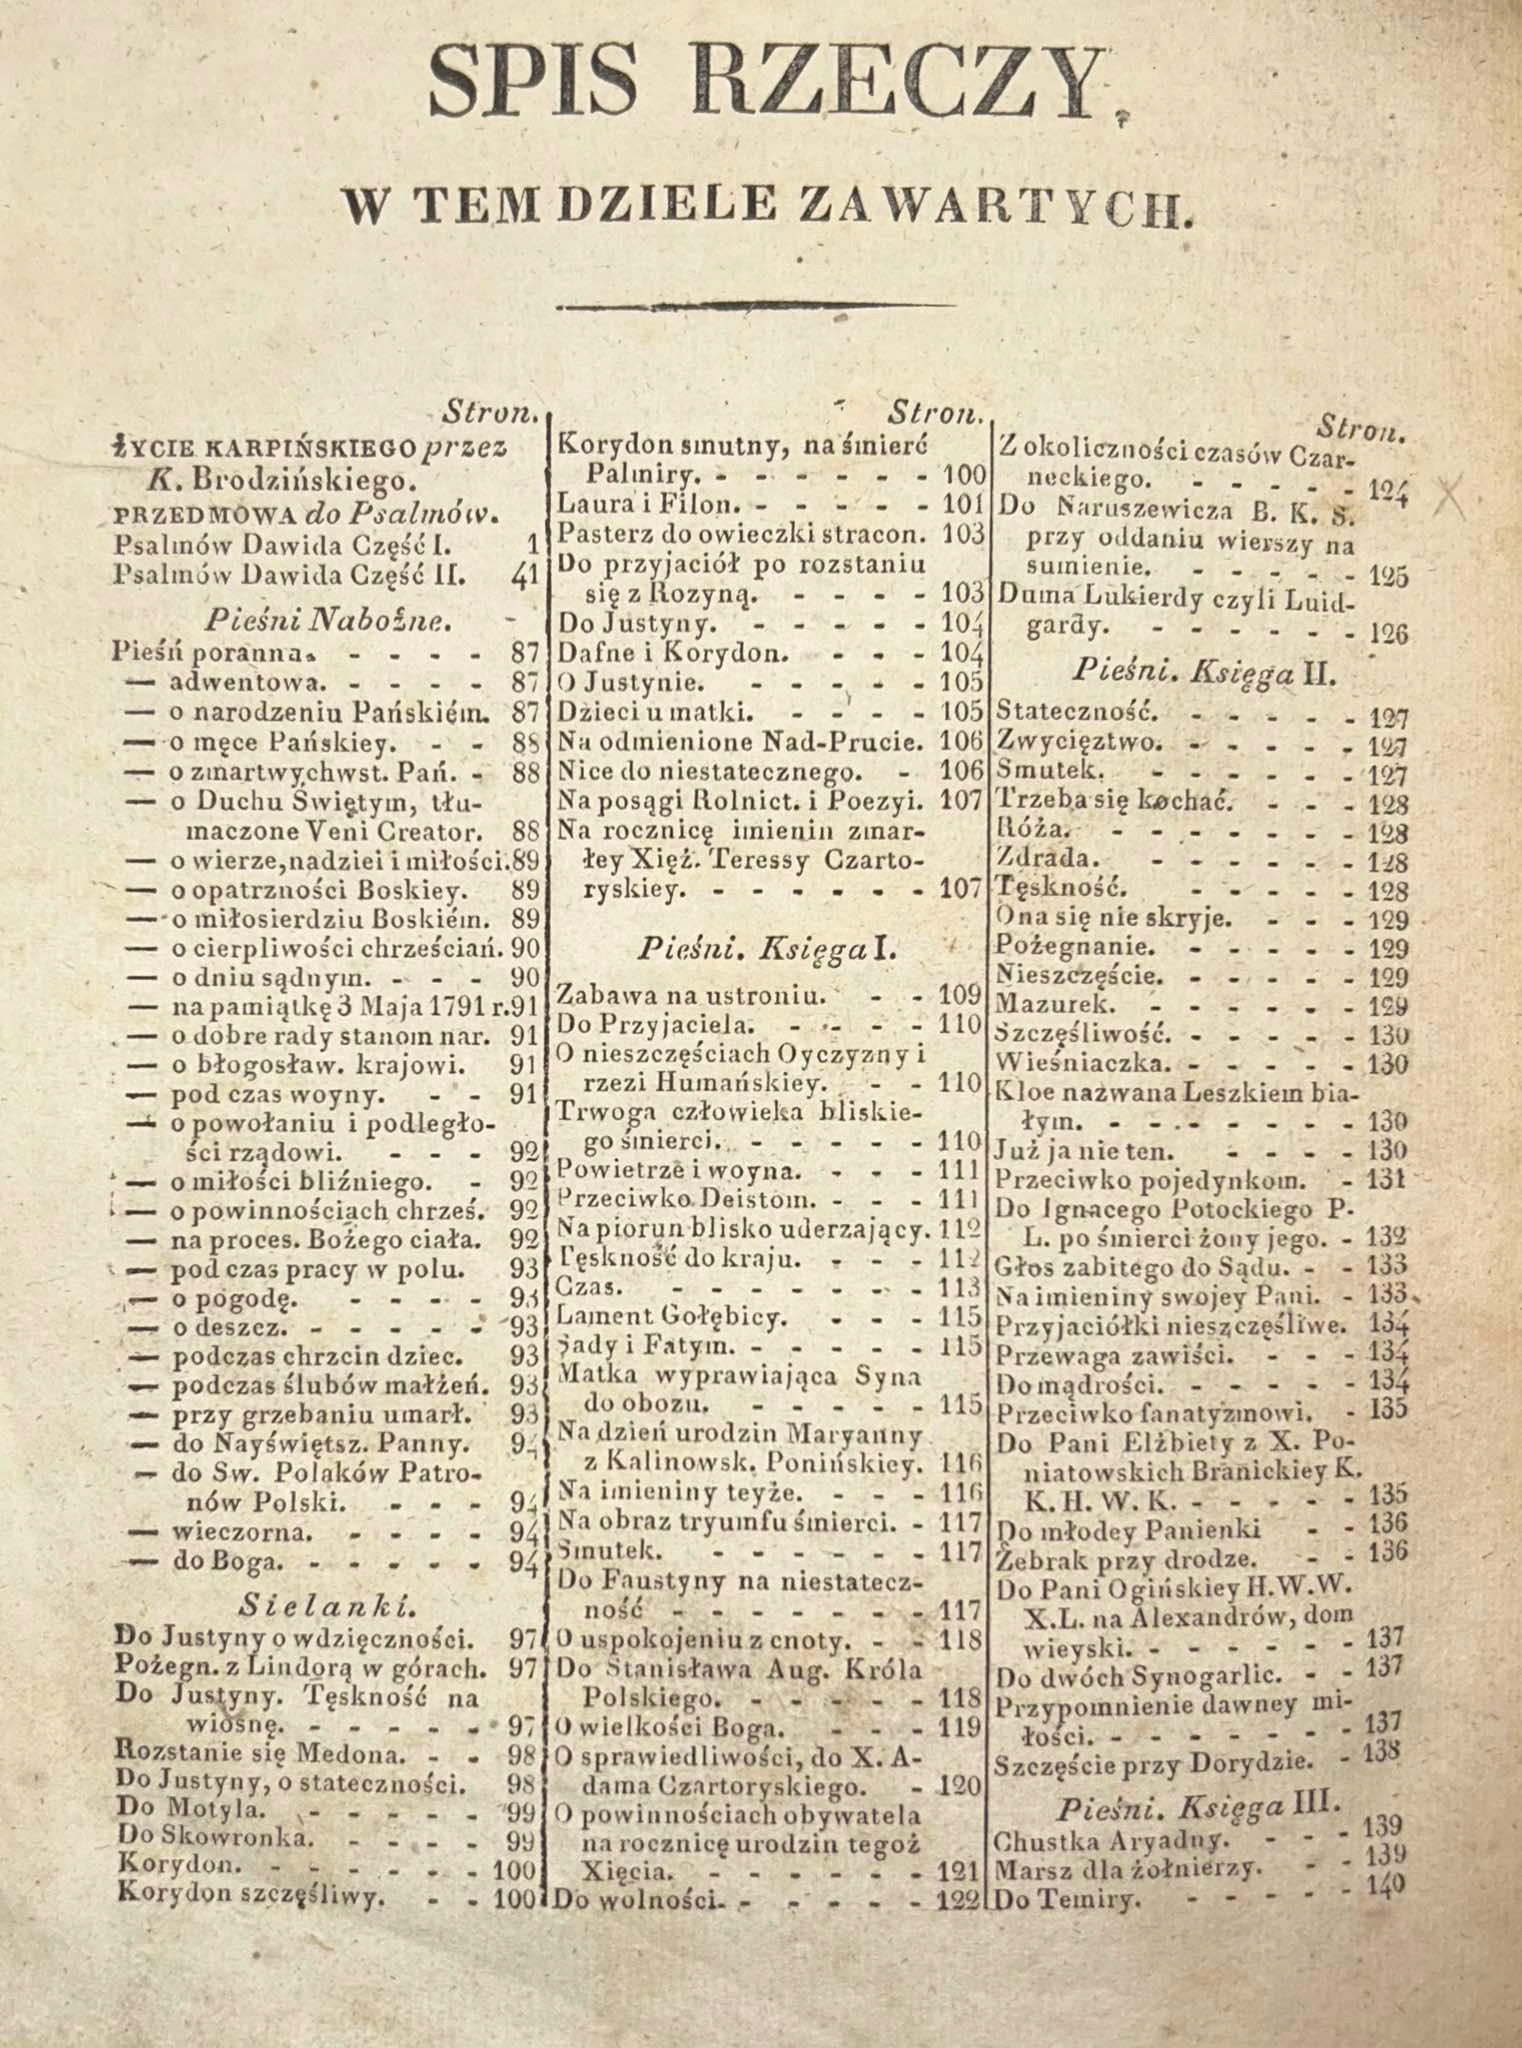 SPIS RZECZY.
W TEM DZIELE ZAWARTYCH.
Stron.
ŻYCIE KARPIŃSKIEGO przez
K. Brodzińskiego.
PRZEDMOWA do Psalmów.
Psalmów Dawida Część I. 1
Psalmów Dawida Część II. 41
Pieśni Nabożne.
Pieśń poranna. - - - - 87
— adwentowa. - - - - 87
— o narodzeniu Pańskiém. 87
— o męce Pańskiey. - - 88
— o zmartwychwst. Pań. - 88
— o Duchu Świętym, tłu-
maczone Veni Creator. 88
— o wierze, nadziei i miłości. 89
— o opatrzności Boskiey. 89
— o miłosierdziu Boskiém. 89
— o cierpliwości chrześciań. 90
— o dniu sądnym. - - - 90
— na pamiątkę 3 Maja 1791 r. 91
— o dobre rady stanom nar. 91
— o błogosław. krajowi. 91
— pod czas woyny. - - 91
— o powołaniu i podległo-
ści rządowi. - - - 92
— o miłości bliźniego. - 92
— o powinnościach chrześ. 92
— na proces. Bożego ciała. 92
— pod czas pracy w polu. 93
— o pogodę. - - - - 93
— o deszcz. - - - - - 93
— podczas chrzcin dziec. 93
— podczas ślubów małżeń. 93
— przy grzebaniu umarł. 93
— do Nayświętsz. Panny. 94
— do Sw. Polaków Patro-
nów Polski. - - - 94
— wieczorna. - - - - 94
— do Boga. - - - - - 94
Sielanki.
Do Justyny o wdzięczności. 97
Pożegn. z Lindorą w górach. 97
Do Justyny. Tęskność na
wiosnę. - - - - - 97
Rozstanie się Medona. - - 98
Do Justyny, o stateczności. 98
Do Motyla. - - - - - 99
Do Skowronka. - - - - 99
Korydon. - - - - - - 100
Korydon szczęśliwy. - - 100
Stron.
Korydon smutny, na śmierć
Palmiry. - - - - - - 100
Laura i Filon. - - - - - 101
Pasterz do owieczki stracon. 103
Do przyjaciół po rozstaniu
się z Rozyną. - - - - 103
Do Justyny. - - - - - 104
Dafne i Korydon. - - - 104
O Justynie. - - - - - 105
Dzieci u matki. - - - - 105
Na odmienione Nad-Prucie. 106
Nice do niestatecznego. - 106
Na posągi Rolnict. i Poezyi. 107
Na rocznicę imienin zmar-
łey Xięż. Teressy Czarto-
ryskiey. - - - - - - 107
Pieśni. Księga I.
Zabawa na ustroniu. - - 109
Do Przyjaciela. - - - - 110
O nieszczęściach Oyczyzny i
rzezi Humańskiey. - - 110
Trwoga człowieka bliskie-
go śmierci. - - - - - 110
Powietrze i woyna. - - - 111
Przeciwko Deistom. - - - 111
Na piorun blisko uderzający. 112
Tęskność do kraju. - - - 112
Czas. - - - - - - - 113
Lament Gołębicy. - - - 115
Sady i Fatym. - - - - - 115
Matka wyprawiająca Syna
do obozu. - - - - - 115
Na dzień urodzin Maryanny
z Kalinowsk. Ponińskiey. 116
Na imieniny teyże. - - - 116
Na obraz tryumfu śmierci. - 117
Smutek. - - - - - - 117
Do Faustyny na niestatecz-
ność - - - - - - - 117
O uspokojeniu z cnoty. - - 118
Do Stanisława Aug. Króla
Polskiego. - - - - - 118
O wielkości Boga. - - - 119
O sprawiedliwości, do X. A-
dama Czartoryskiego. - 120
O powinnościach obywatela
na rocznicę urodzin tegoż
Xięcia. - - - - - - 121
Do wolności. - - - - - 122
Stron.
Z okoliczności czasów Czar-
neckiego. - - - - - 124
Do Naruszewicza B. K. S.
przy oddaniu wierszy na
sumienie. - - - - - 125
Duma Lukierdy czyli Luid-
gardy. - - - - - - 126
Pieśni. Księga II.
Stateczność. - - - - - 127
Zwycięztwo. - - - - - 127
Smutek. - - - - - - 127
Trzeba się kochać. - - - 128
Róża. - - - - - - - 128
Zdrada. - - - - - - 128
Tęskność. - - - - - 128
Ona się nie skryje. - - - 129
Pożegnanie. - - - - - 129
Nieszczęście. - - - - - 129
Mazurek. - - - - - - 129
Szczęśliwość. - - - - - 130
Wieśniaczka. - - - - - 130
Kloe nazwana Leszkiem bia-
łym. - - - - - - - 130
Już ja nie ten. - - - - 130
Przeciwko pojedynkom. - 131
Do Ignacego Potockiego P.
L. po śmierci żony jego. - 132
Głos zabitego do Sądu. - - 133
Na imieniny swojey Pani. - 133
Przyjaciółki nieszczęśliwe. 134
Przewaga zawiści. - - - 134
Do mądrości. - - - - - 134
Przeciwko fanatyzmowi. - 135
Do Pani Elżbiety z X. Po-
niatowskich Branickiey K.
K. H. W. K. - - - - - 135
Do młodey Panienki - - 136
Żebrak przy drodze. - - 136
Do Pani Ogińskiey H.W.W.
X.L. na Alexandrów, dom
wieyski. - - - - - - 137
Do dwóch Synogarlic. - - 137
Przypomnienie dawney mi-
łości. - - - - - - - 137
Szczęście przy Dorydzie. - 138
Pieśni. Księga III.
Chustka Aryadny. - - - 139
Marsz dla żołnierzy. - - 139
Do Temiry. - - - - - 140